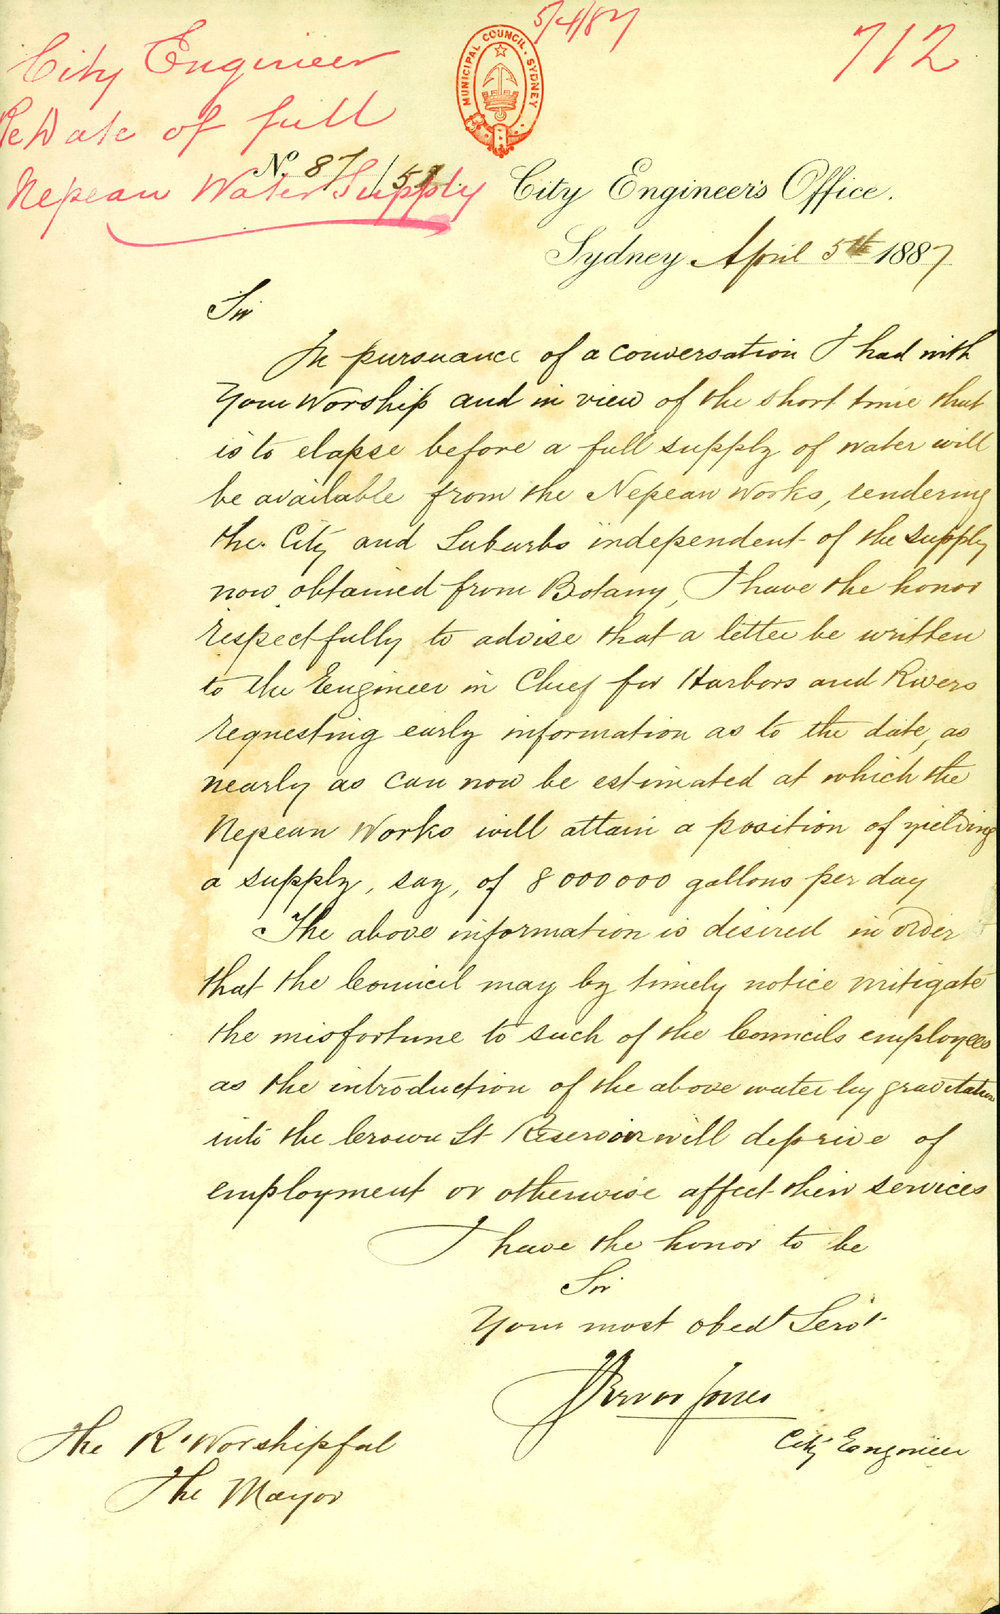 5/4/87
712
City Engineer
Re Date of full
Nepean Water Supply
MUNICIPAL COUNCIL · SYDNEY
No. 87/
City Engineer's Office.
Sydney April 5th 1887
Sir
In pursuance of a conversation I had with
Your Worship and in view of the short time that
is to elapse before a full supply of water will
be available from the Nepean Works, rendering
the City and Suburbs independent of the supply
now obtained from Botany, I have the honor
respectfully to advise that a letter be written
to the Engineer in Chief for Harbors and Rivers
requesting early information as to the date, as
nearly as can now be estimated at which the
Nepean Works will attain a position of yielding
a supply, say, of 8 000 000 gallons per day
The above information is desired in order
that the Council may by timely notice mitigate
the misfortune to such of the Councils employees
as the introduction of the above water by gravitation
into the Crown St Reservoir will deprive of
employment or otherwise affect their services
I have the honor to be
Sir
Your most obedt Servt
Trevor Jones
City Engineer
The Rt Worshipful
The Mayor